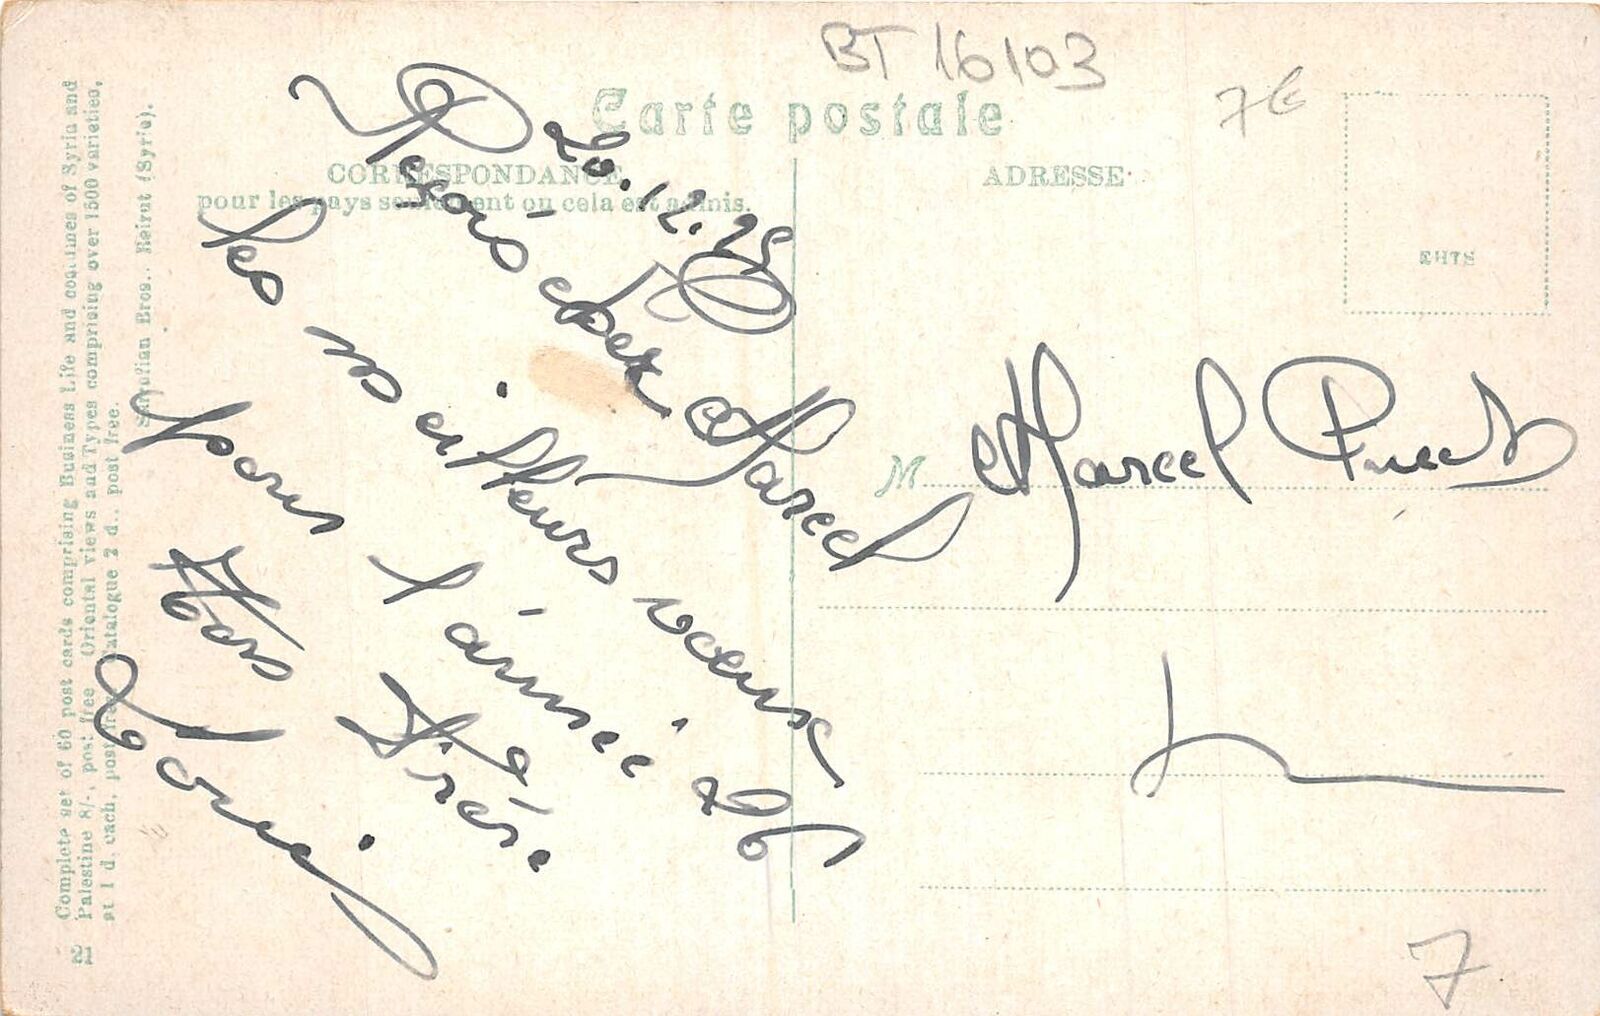 BT 16103
7€
Carte postale
CORRESPONDANCE
pour les pays seulement ou cela est admis.
ADRESSE
20.12.25
Reçois cher Marcel
les meilleurs voeux
pour l'année 26
Ton frère
M Marcel
7
Complete set of 60 post cards comprising Business Life and costumes of Syria and
Palestine 8/-, post free Oriental views and Types comprising over 1500 varieties,
at 1 d. each, post free. Catalogue 2 d., post free.
Sarrafian Bros., Beirut (Syrie).
21